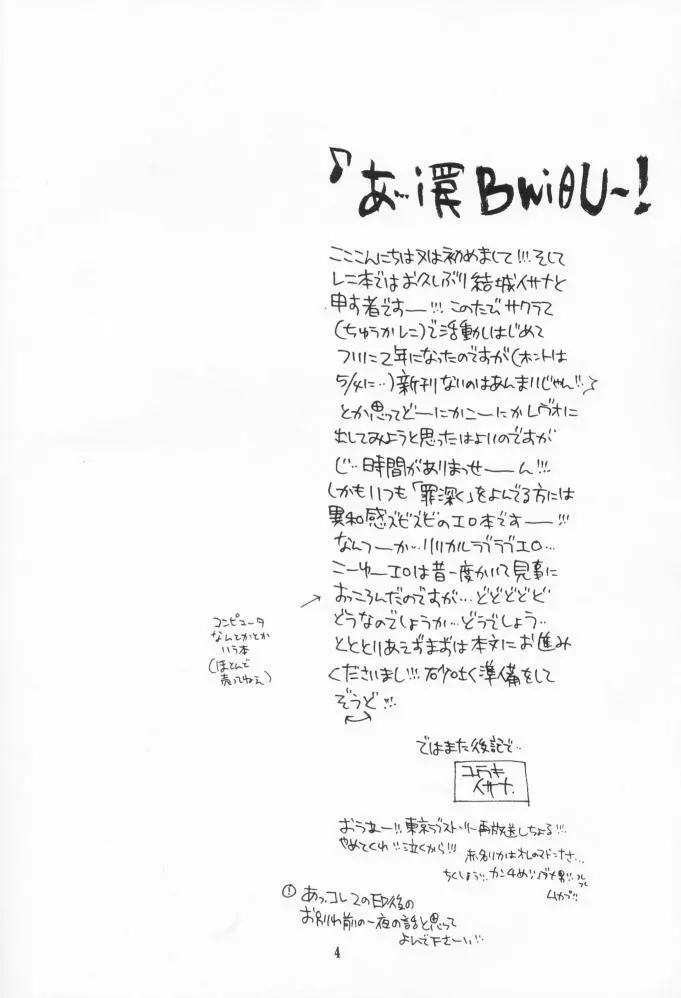 こここんにちは又は初めまして!!!そして
レニ本ではお久しぶり結城イサナと
申す者ですー!!!このたびサクラて
(ちゅうかレニ)で活動しはじめて
ついに2年になったのですが(ホントは
5/4に‥)新刊ないのはあんまいじゃん!!
とか思ってどーにかこーにかレヴォに
出してみようと思ったはよいのですが
じ‥時間がありまっせーーん!!!
しかもいつも「罪深く」をよんでる方には
異和感ズビズビのエロ本ですー!!!
なんつーか‥リリカルラブラブエロ…
こーゆーエロは昔一度かいて見事に
おっころんだのですが…どどどどど
どうなのでしょうか…どうでしょう‥
とととりあえずまずは本文にお進み
くださいまし!!!砂吐く準備をして
ぞうど!!
コンピュータ
なんとかとか
いう本
(ほとんで
売ってねえ)
ではまた後記で‥
ユウキ
イサナ
おうおー!!東京ラブストーリー再放送しちょる!!!
やめてくれ!!泣くから!!!
赤名リカはオレのマドンナさ…
ちくしょう!!カンチめ!!ダメ男!!
ムカプ!!
! あっコレ2の印後の
お別れ前の一夜の話と思って
よんで下さーい!!
4